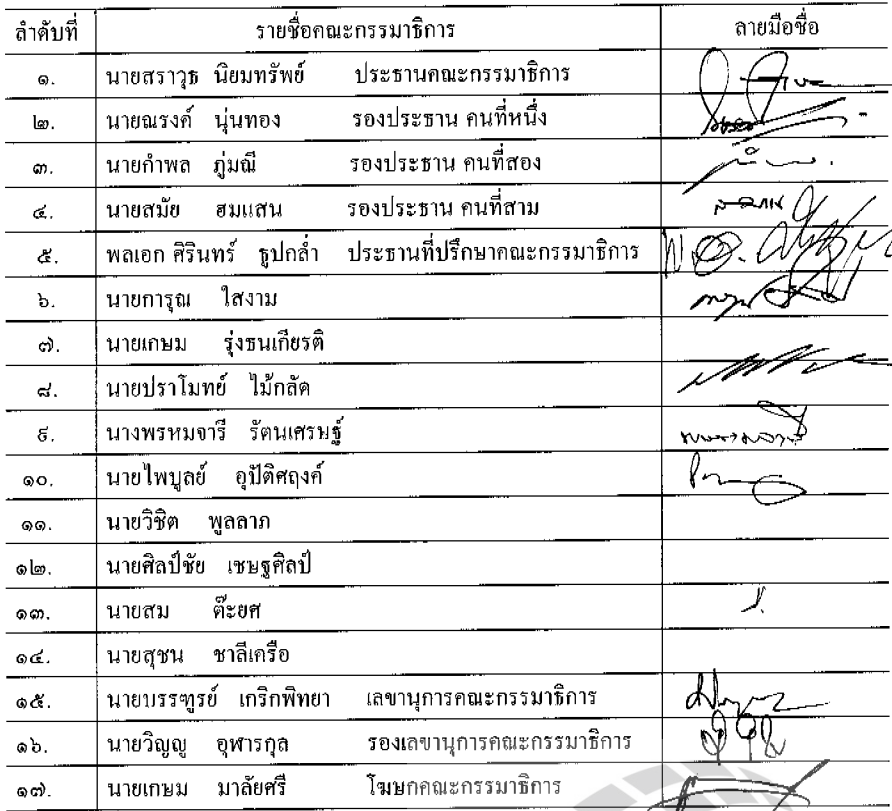 ลำดับที่ รายชื่อคณะกรรมาธิการ ลายมือชื่อ
๑. นายสราวุธ นิยมทรัพย์ ประธานคณะกรรมาธิการ
๒. นายณรงค์ นุ่นทอง รองประธาน คนที่หนึ่ง
๓. นายกำพล ภู่มณี รองประธาน คนที่สอง
๔. นายสมัย ฮมแสน รองประธาน คนที่สาม
๕. พลเอก ศิรินทร์ ธูปกล่ำ ประธานที่ปรึกษาคณะกรรมาธิการ
๖. นายการุณ ใสงาม
๗. นายเกษม รุ่งธนเกียรติ
๘. นายปราโมทย์ ไม้กลัด
๙. นางพรหมจารี รัตนเศรษฐ์
๑๐. นายไพบูลย์ อุปัติศฤงค์
๑๑. นายวิชิต พูลลาภ
๑๒. นายศิลป์ชัย เชษฐศิลป์
๑๓. นายสม ต๊ะยศ
๑๔. นายสุชน ชาลีเครือ
๑๕. นายบรรฑูรย์ เกริกพิทยา เลขานุการคณะกรรมาธิการ
๑๖. นายวิญญู อุฬารกุล รองเลขานุการคณะกรรมาธิการ
๑๗. นายเกษม มาลัยศรี โฆษกคณะกรรมาธิการ